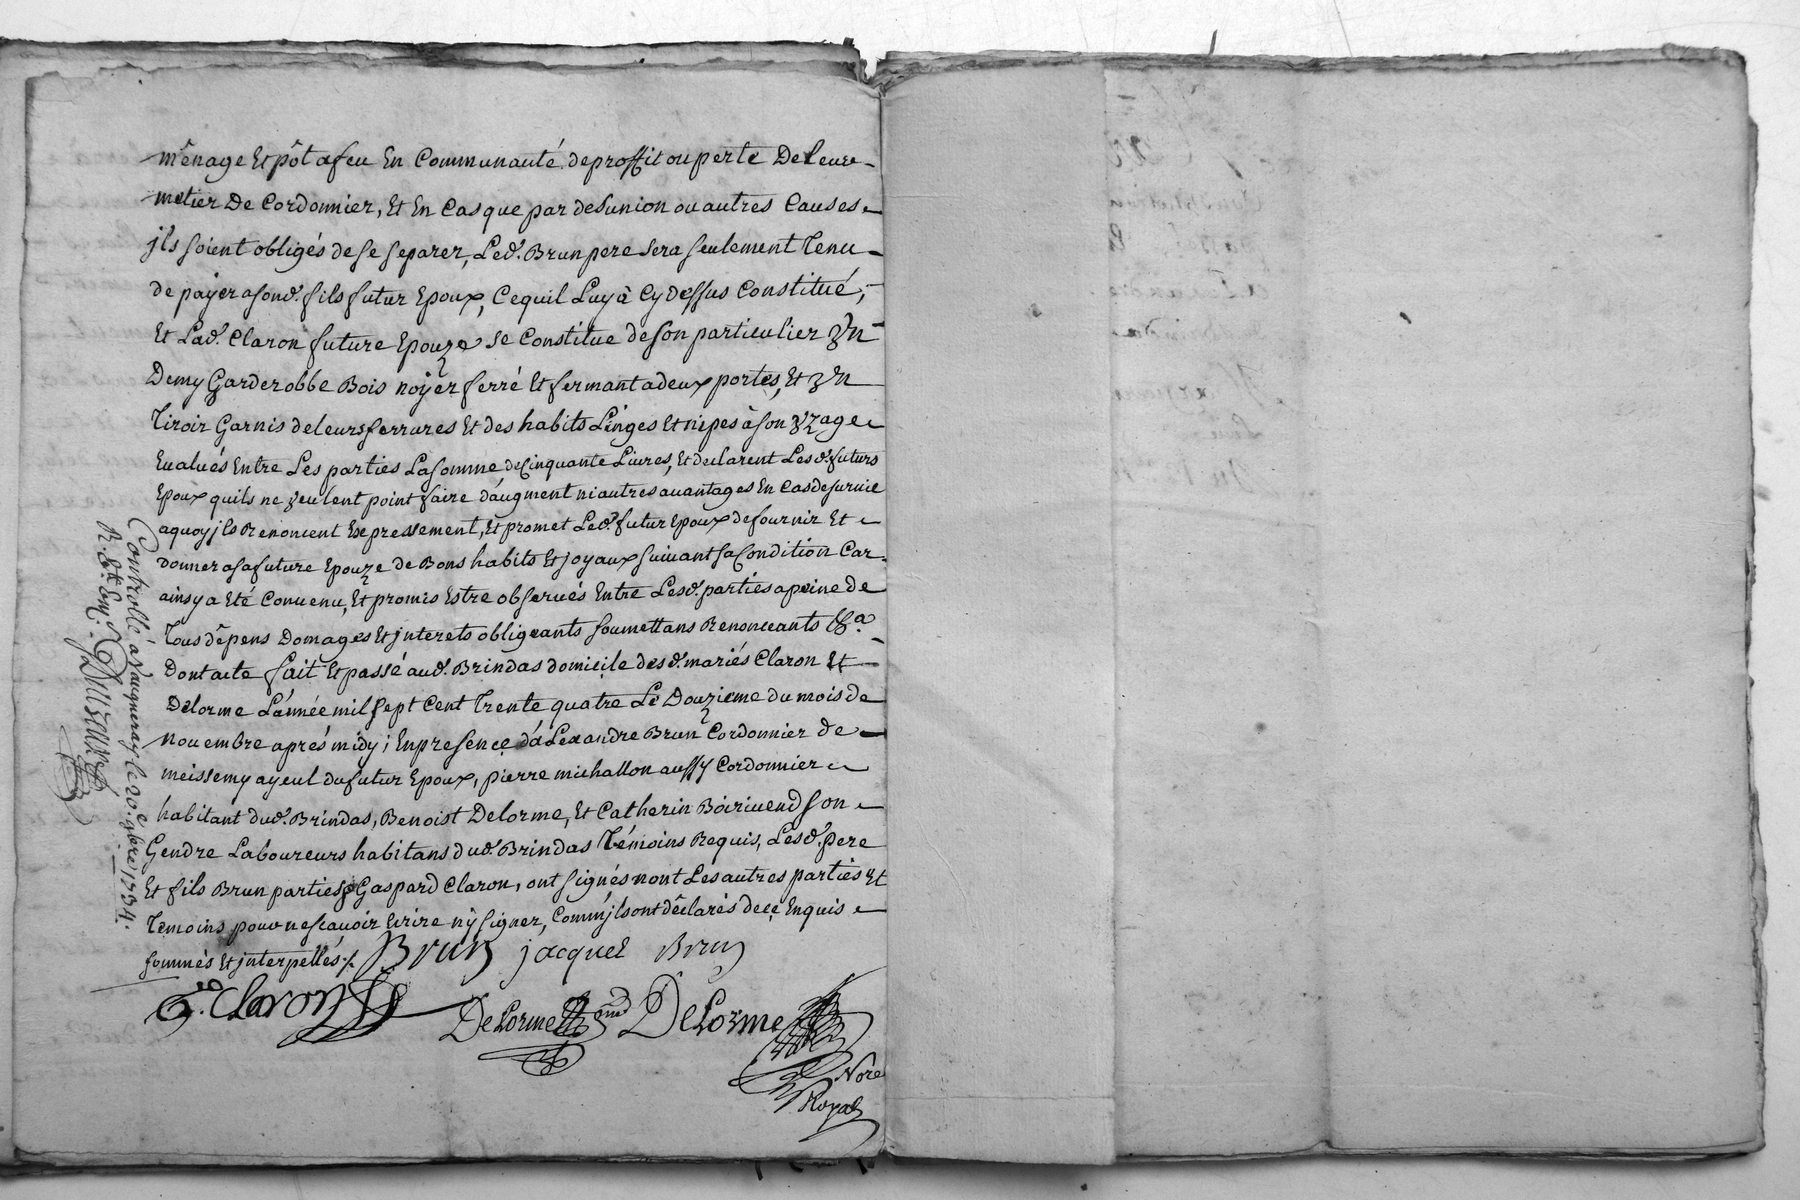 mênage Et pôt a feu En Communauté de proffit ou perte De leur
metier De Cordonnier, Et En Cas que par desunion ou autres Causes
jls soient obligés de se separer, Led. Brun pere sera seulement Tenu
de payer a sond. fils futur Epoux, Ce quil Luy à Cy Dessus Constitué,
Et Lad. Claron future Epouze se Constitue de son particulier Vn
Demy Garderobbe Bois noyer ferré Et fermant a deux portes, Et Vn
Tiroir Garnis de leurs ferrures Et des habits Linges Et nipes à son Vzage
Eualués Entre Les parties La somme de Cinquante Liures, Et declarent Lesd. futurs
Epoux quils ne Veulent point faire d'augment ni autres auantages En Cas de suruie
a quoy jls Renoncent Expressement, Et promet Led. futur Epoux de fournir Et
donner a sa future Epouze de Bons habits Et joyaux suiuant sa Condition Car
ainsy a Eté Conuenu, Et promis Estre obserués Entre Lesd. parties a peine de
Tous dêpens Domages Et jnterets obligeants soumettans Renonceants &a.
Dont acte fait Et passé aud. Brindas domicile desd. mariés Claron Et
Delorme L'année mil sept Cent Trente quatre Le Douzieme du mois de
nouembre aprés midy; En presence d'alexandre Brun Cordonnier de
meissemy ayeul du futur Epoux, pierre michallon aussy Cordonnier
habitant dud. Brindas, Benoist Delorme, Et Catherin Boiriuend son
Gendre Laboureurs habitans dud. Brindas Témoins Requis, Lesd. pere
Et fils Brun parties & Gaspard Claron, ont signés nont Les autres parties Et
Temoins pour ne scauoir Ecrire ny signer, Comm'jls ont dêclarés de ce Enquis
sommés Et jnterpellés ./.
Brun jacques Brun
G. Claron
Delorme DeLorme
Nore
Royal
Controllé a Vaugneray le 20e. 9bre 1734.
R.